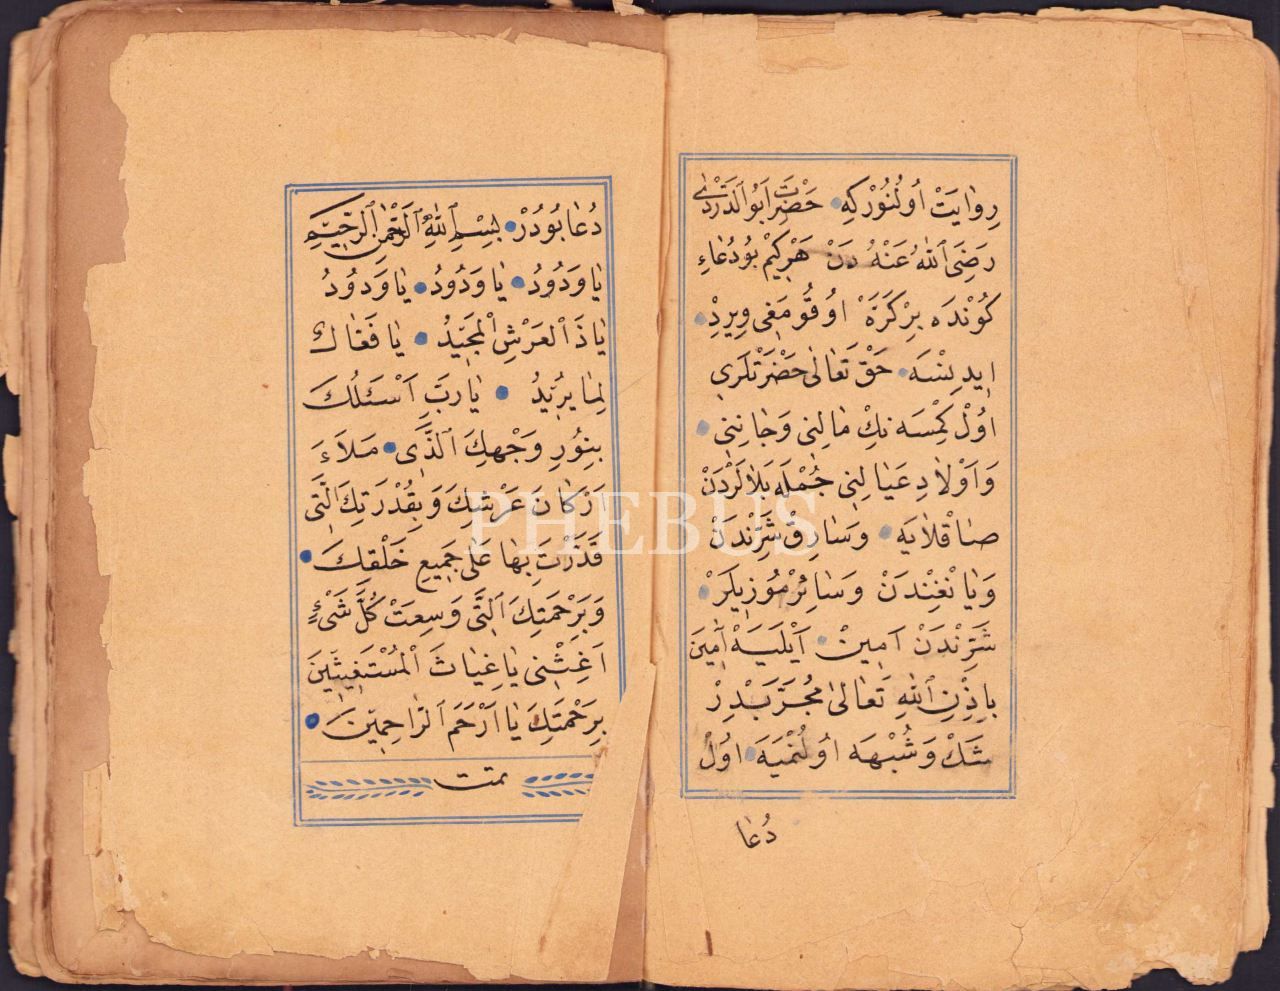 رِوَايَتْ اُولُنُوْركِه حَضْرَتِ اَبُو الدَّرْدٰى
رَضِىَ اللّٰهُ عَنْهُ دَنْ هَرْكِيمْ بُودُعَاءِ
كُونْدَه بِرْكَرَّهْ اوُقُومَغِى وِيرِدِ
ايدِينْسَه حَقْ تَعَالٰى حَضْرَتْلَرِي
اوُلْ كِمْسَه نِكْ مَالِنِى وَجَانِنِى
وَاَوْلَادِ عِيَالِنِى جُمْلَه بَلَالَرْدَنْ
صَاقْلَايَه وَسَارِقْ شَرِّنْدَنْ
وَيَانْغِنْدَنْ وَسَائِرْ مُوزِيلَرْ
شَرِّنْدَنْ اَمِينْ اَيْلَيَهْ آمِينَ
بِاِذْنِ اللّٰهِ تَعَالٰى مُجَرَّبْدِرْ
شَكْ وَشُبْهَه اُولُنْمَيَه اوُلْ
دُعَا
دُعَا بُودُرْ بِسْمِ اللّٰهِ الرَّحْمٰنِ الرَّحِيمِ
يَا وَدُودُ يَا وَدُودُ يَا وَدُودُ
يَا ذَا الْعَرْشِ الْمَجِيدُ يَا فَعَّالُ
لِمَا يُرِيدُ يَا رَبِّ اَسْئَلُكَ
بِنُورِ وَجْهِكَ الَّذِى مَلَاءَ
اَرْكَانَ عَرْشِكَ وَبِقُدْرَتِكَ الَّتِى
قَدَرْتَ بِهَا عَلٰى جَمِيعِ خَلْقِكَ
وَبِرَحْمَتِكَ الَّتِى وَسِعَتْ كُلَّ شَىْءٍ
اَغِثْنِى يَا غِيَاثَ الْمُسْتَغِيثِينَ
بِرَحْمَتِكَ يَا اَرْحَمَ الرَّاحِمِينَ
تمت
PHEBUS